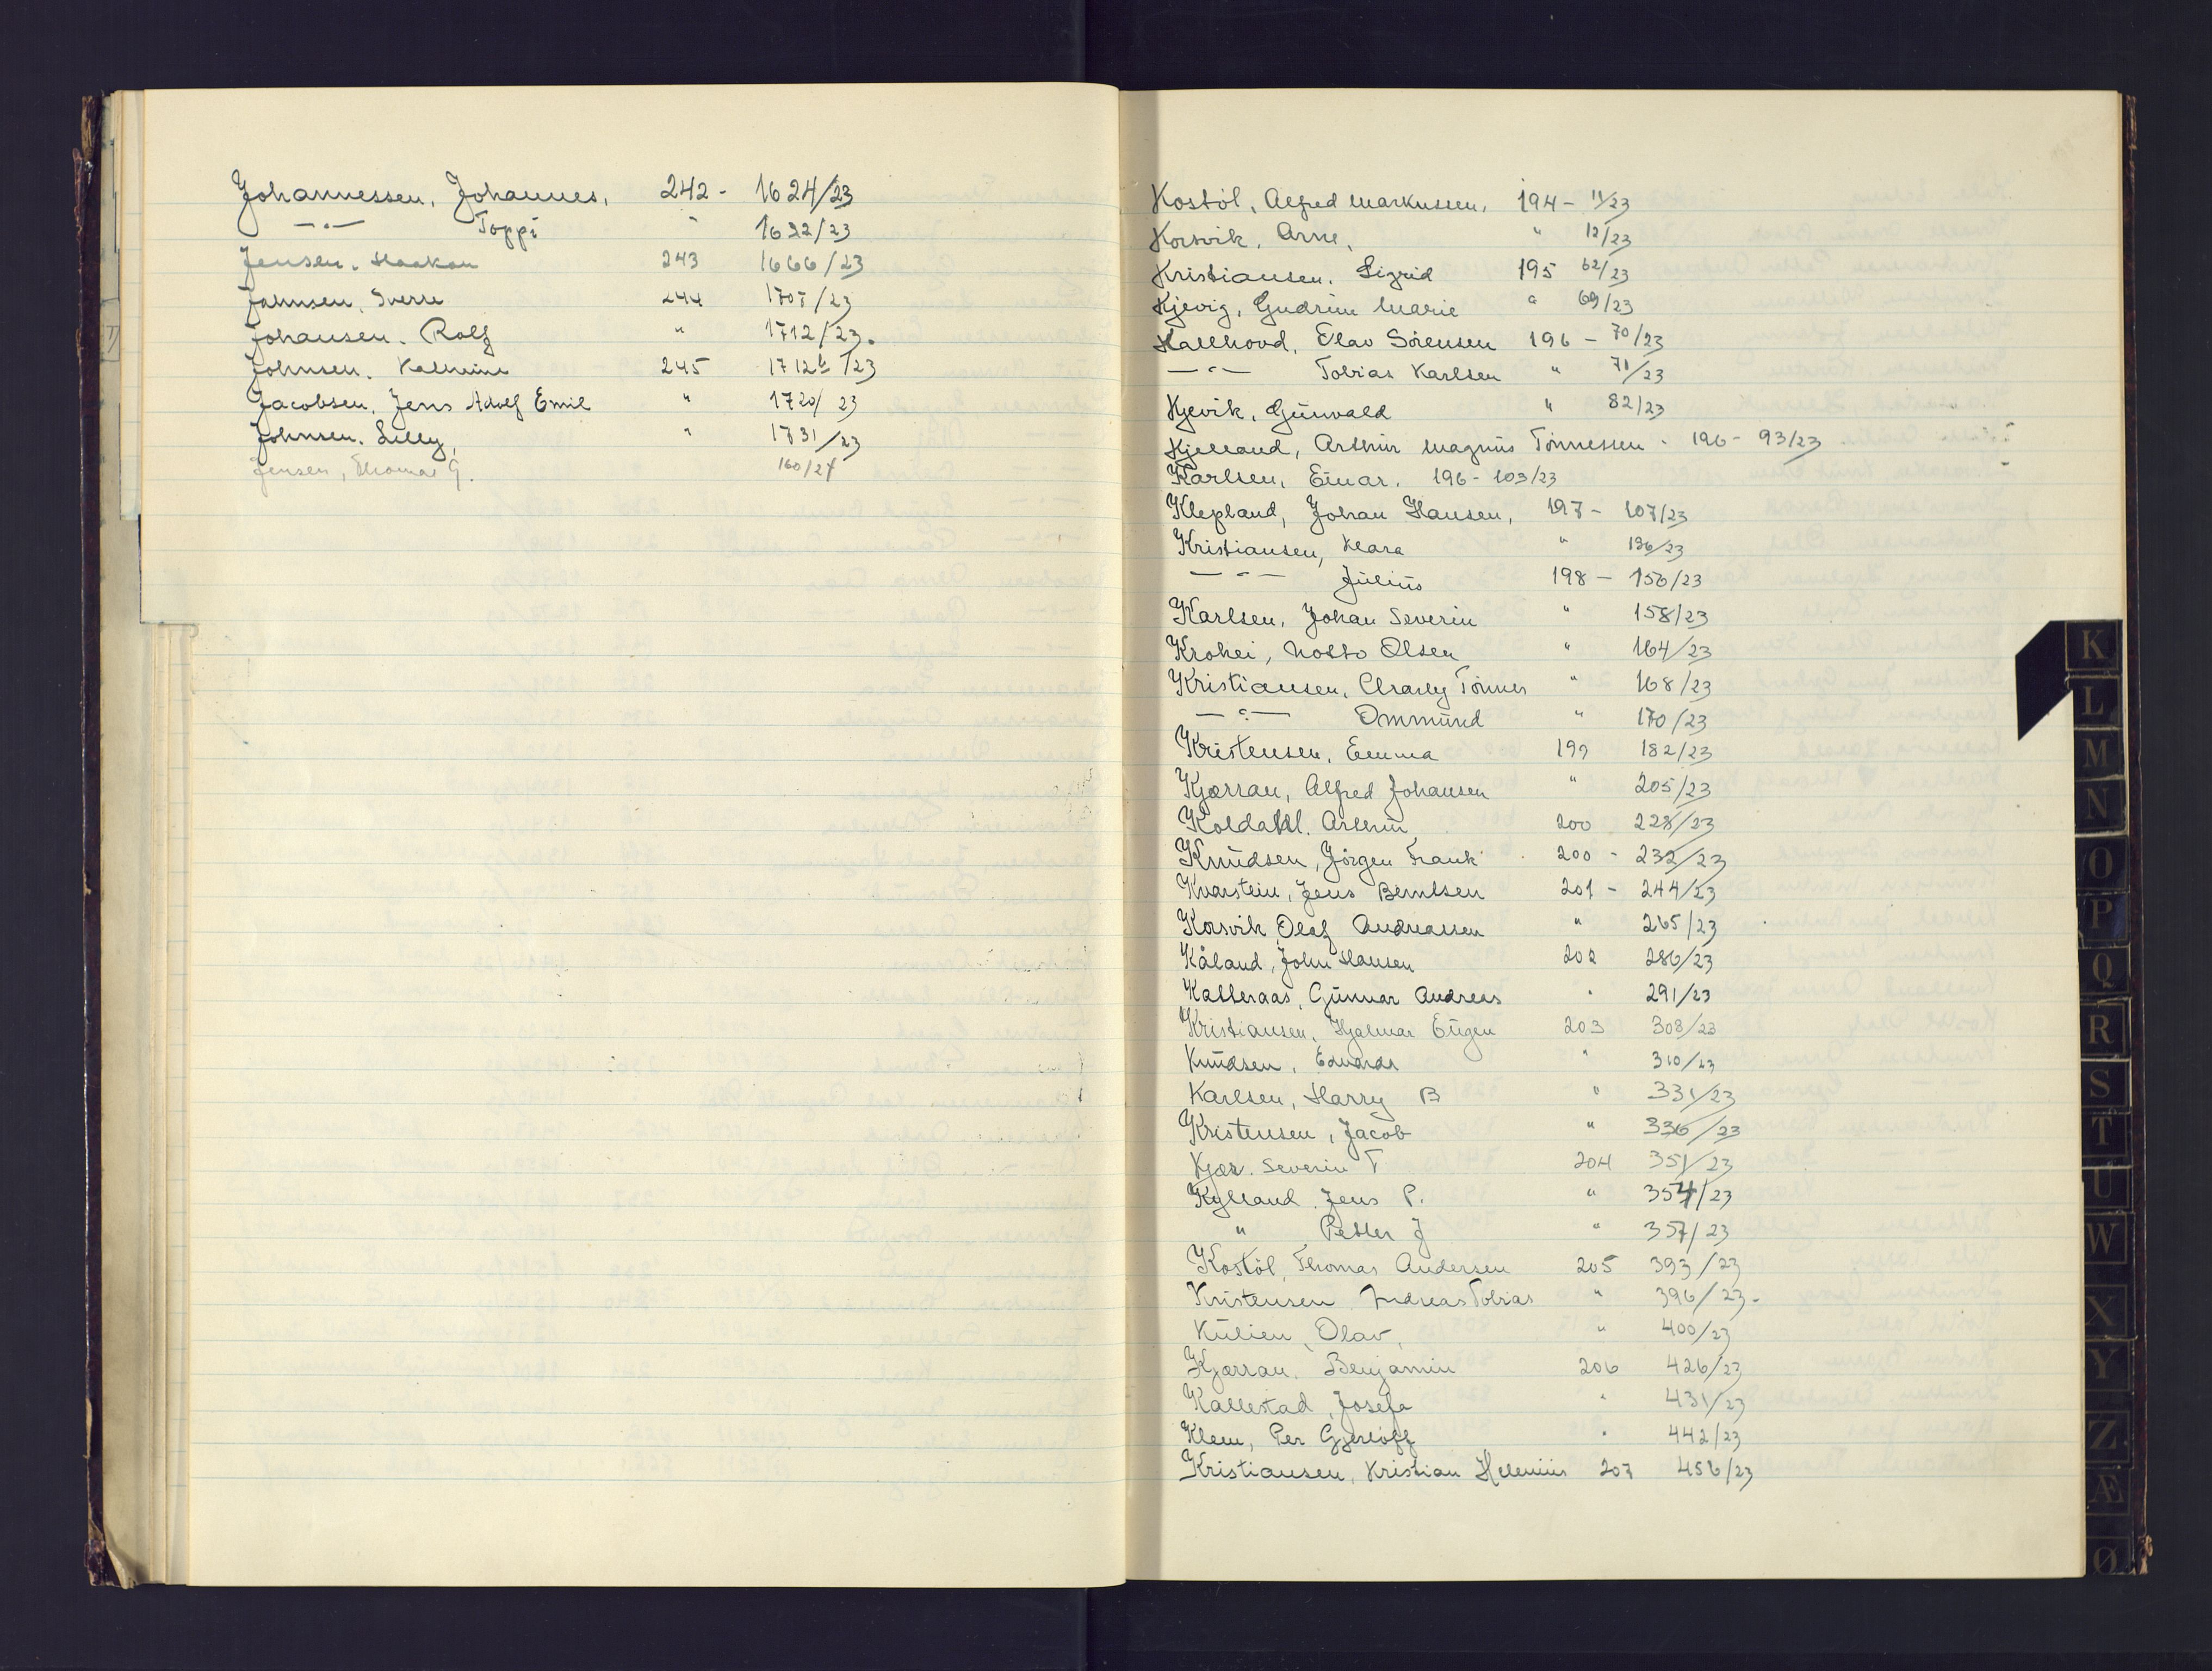 Johannessen, Johannes, 242 - 1624/23
—"— Toppi " 1622/23
Jensen. Haakon 243 1666/23
Jahnsen, Sverre 244 1707/23
Johansen. Rolf " 1712/23.
Johnsen. Kathrine 245 1712b/23
Jacobsen, Jens Adolf Emil " 1720/23
Johnsen. Lilly, " 1731/23
Jensen, Thomas G. 160/24
Kostöl, Alfred Markussen, 194 - 11/23
Korsvik, Arne, " 12/23
Kristiansen. Sigrid 195 62/23
Kjevig, Gudrun Marie " 69/23
Kallhovd, Olav Sörensen 196 - 70/23
—"— Tobias Karlsen " 71/23
Kjevik, Gunvald " 82/23
Kjelland, Arthur Magnus Tönnessen - 196 - 93/23
Karlsen, Einar. 196 - 103/23
Klepland, Johan Hansen, 197 - 107/23
Kristiansen, Klara " 136/23
—"— Julius 198 - 156/23
Karlsen, Johan Severin " 158/23
Krohei, Notto Olsen " 164/23
Kristiansen, Charly Tönnes " 168/23
—"— Ommund " 170/23
Kristensen, Emma 199 182/23
Kjærran, Alfred Johansen " 205/23
Koldahl. Arthur 200 228/23
Knudsen, Jörgen Frank 200 - 232/23
Kvarstein, Jens Berntsen 201 - 244/23
Korsvik Olaf Andreassen " 265/23
Kåland, John Hansen 202 286/23
Katteraas, Gunnar Andreas " 291/23
Kristiansen, Hjalmar Eugen 203 308/23
Knudsen, Edvarda " 310/23
Karlsen, Harry B " 331/23
Kristensen, Jacob " 336/23
Kjær. Severin T 204 351/23
Kylland Jens P. " 354/23
" Petter J " 357/23
Kostöl, Thomas Andersen 205 393/23
Kristensen Andreas Tobias " 396/23-
Kulien, Olav, " 400/23
Kjærran. Benjamin 206 426/23
Kallestad, Josefa " 431/23
Klem, Per Gjerløff " 442/23
Kristiansen, Kristian Helenius 207 456/23
K
L
M
N
O
P
Q
R
S
T
U
W
X
Y
Z
Æ
Ø